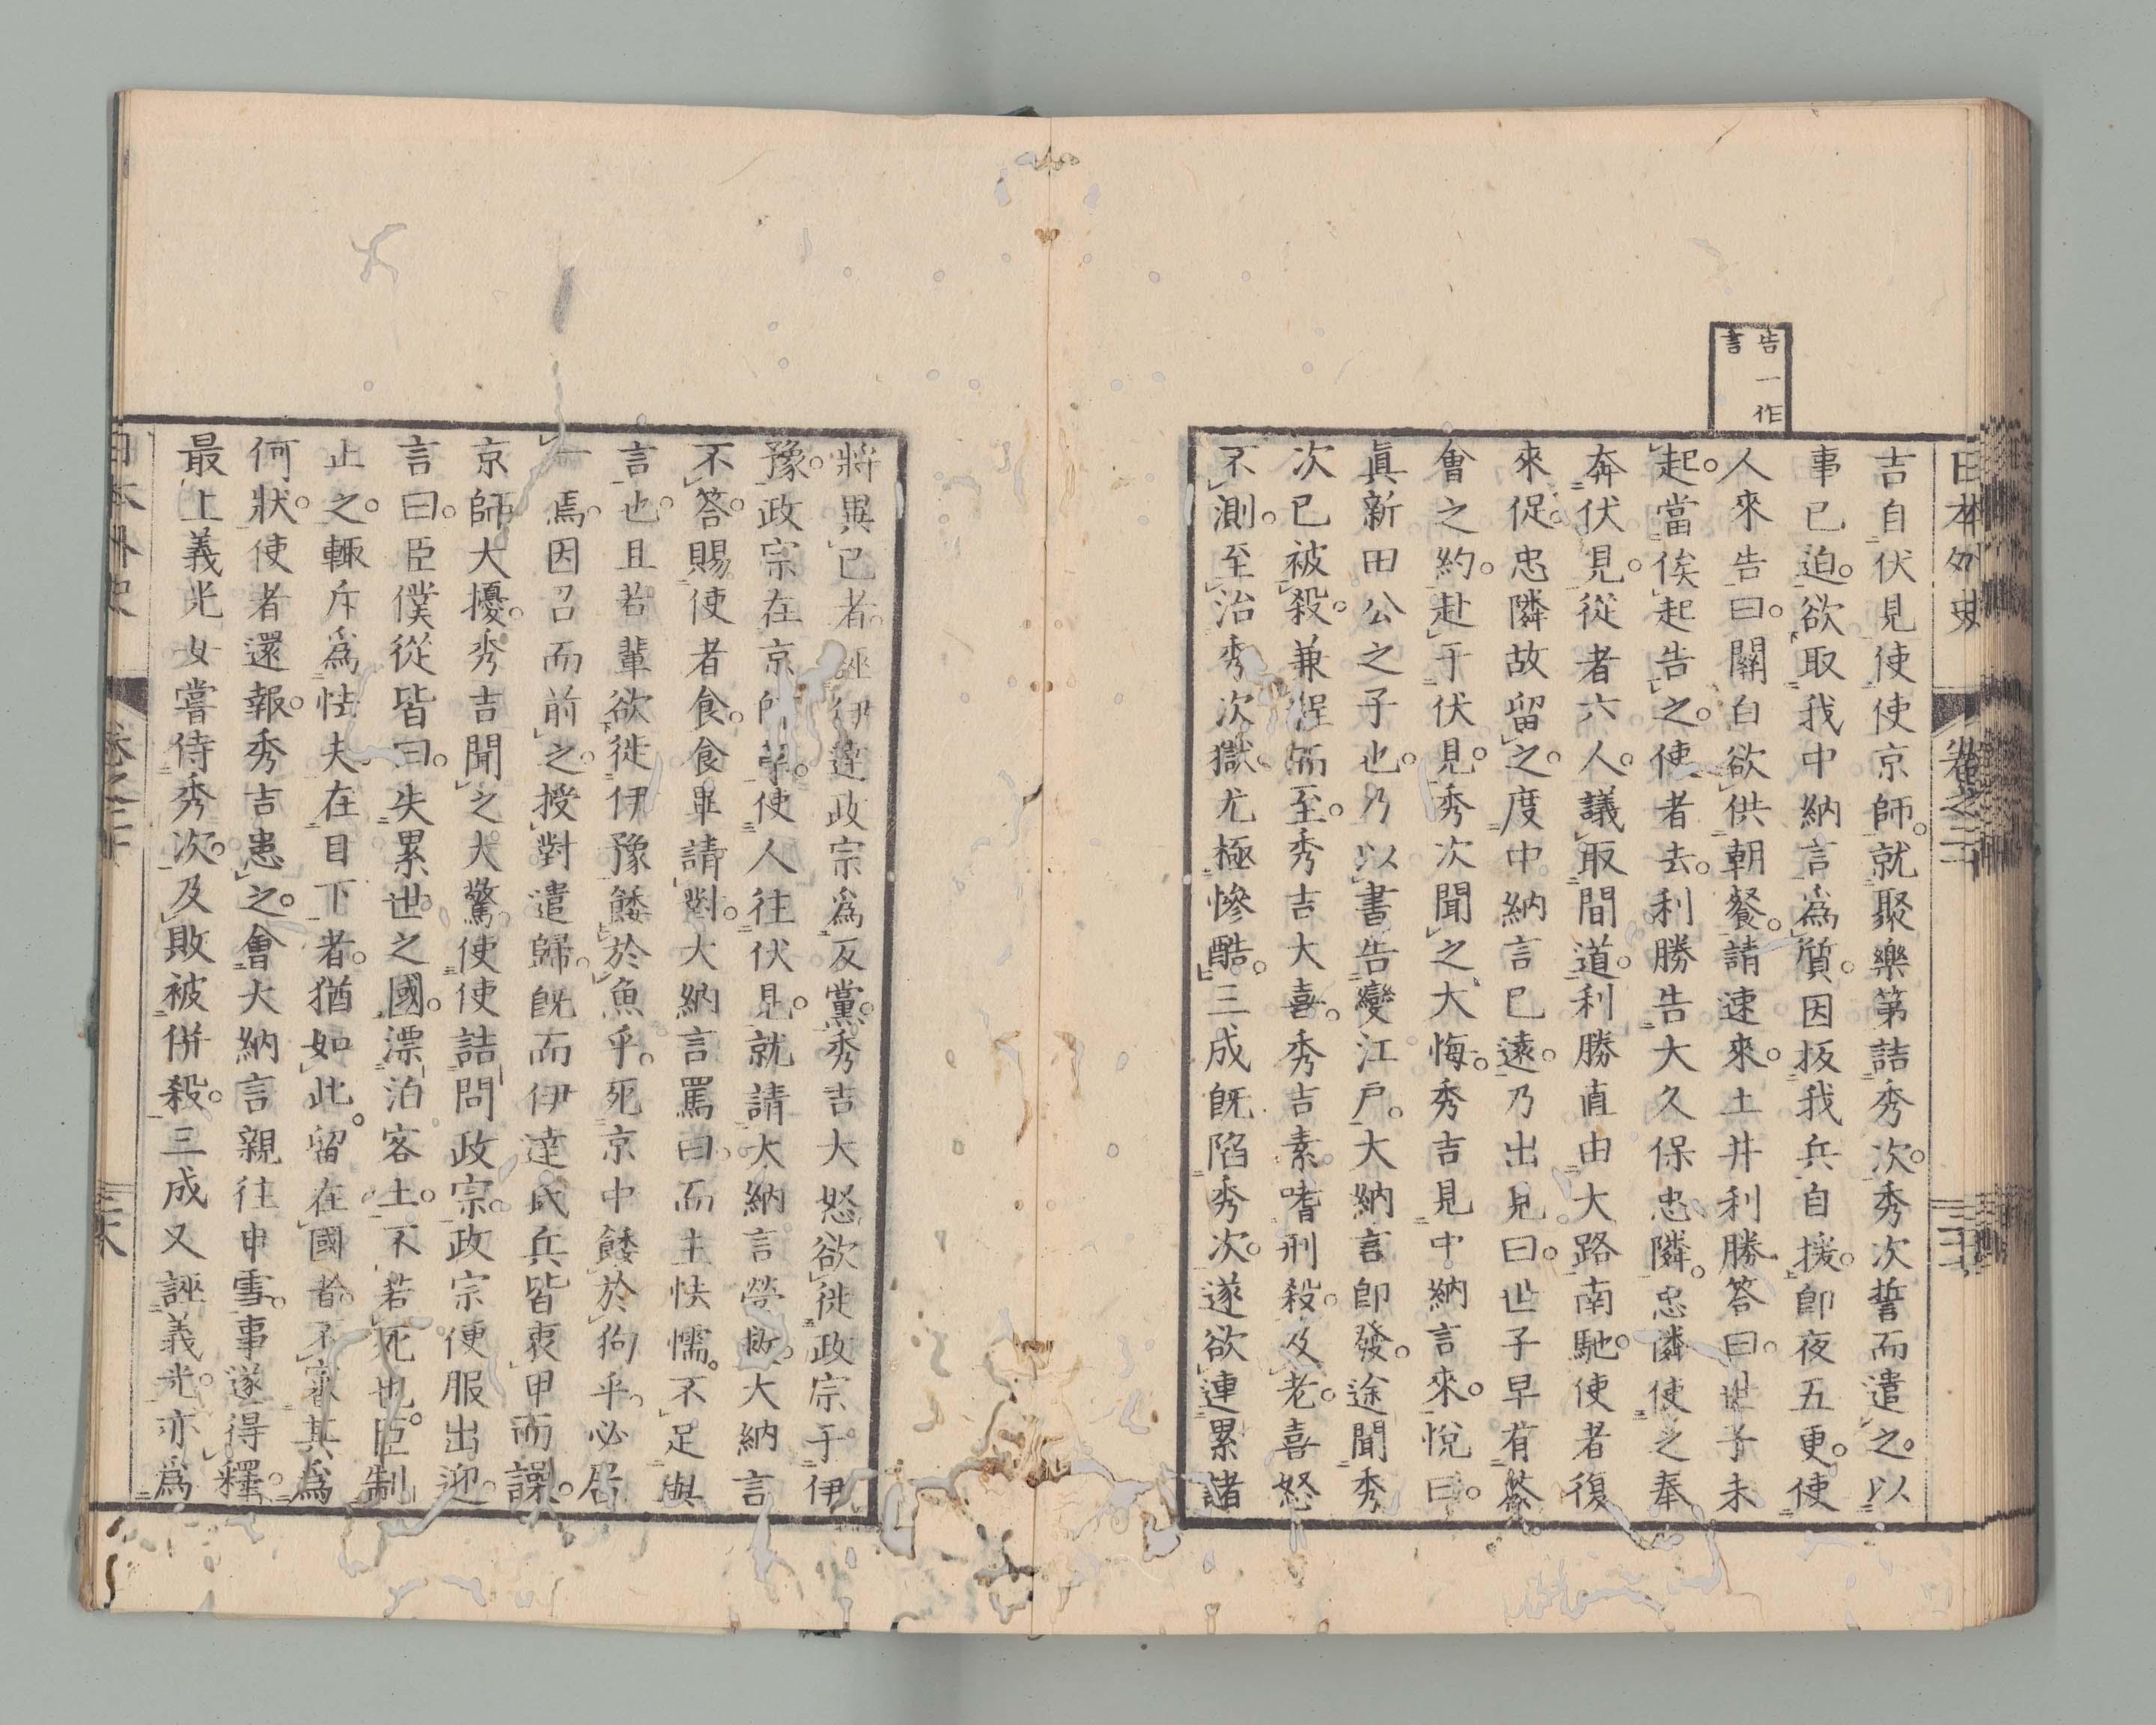 日本外史 卷之二十
告一作
言
吉自伏見使使京師。就聚樂第詰秀次。秀次誓而遣之。以
事已迫。欲取我中納言為質。因扳我兵自援。即夜五更。使
人來告曰。關白欲供朝餐。請速來。土井利勝答曰。世子未
起。當俟起告之。使者去。利勝告大久保忠隣。忠隣使之奉
奔伏見。從者六人。議取間道。利勝直由大路南馳。使者復
來促。忠隣故留之。度中納言已遠。乃出見曰。世子早有茶
會之約。赴于伏見。秀次聞之大悔。秀吉見中納言來。悅曰。
眞新田公之子也。乃以書告變江戶。大納言即發。途聞秀
次已被殺。兼程而至。秀吉大喜。秀吉素嗜刑殺。及老。喜怒
不測。至治秀次獄。尤極慘酷。三成既陷秀次。遂欲連累諸
將異已者。誣伊達政宗為反黨。秀吉大怒。欲徙政宗于伊
豫。政宗在京師。使人往伏見。就請大納言營救。大納言
不答。賜使者食。食畢請對。大納言罵曰。而主怯懦。不足與
言也。且若輩欲徙伊豫餧於魚乎。死京中餧於狗乎。必居
一焉。因召而前之。授對遣歸。既而伊達氏兵皆衷甲而譟。
京師大擾。秀吉聞之大驚。使使詰問政宗。政宗便服出迎。
言曰。臣僕從皆曰。失累世之國。漂泊客土。不若死也。臣制
止之。輒斥為怯夫。在目下者。猶如此。留在國者。不審其為
何狀。使者還報。秀吉患之。會大納言親往申雪。事遂得釋。
最上義光女嘗侍秀次。及敗被併殺。三成又誣義光。亦為
日本外史 卷之二十